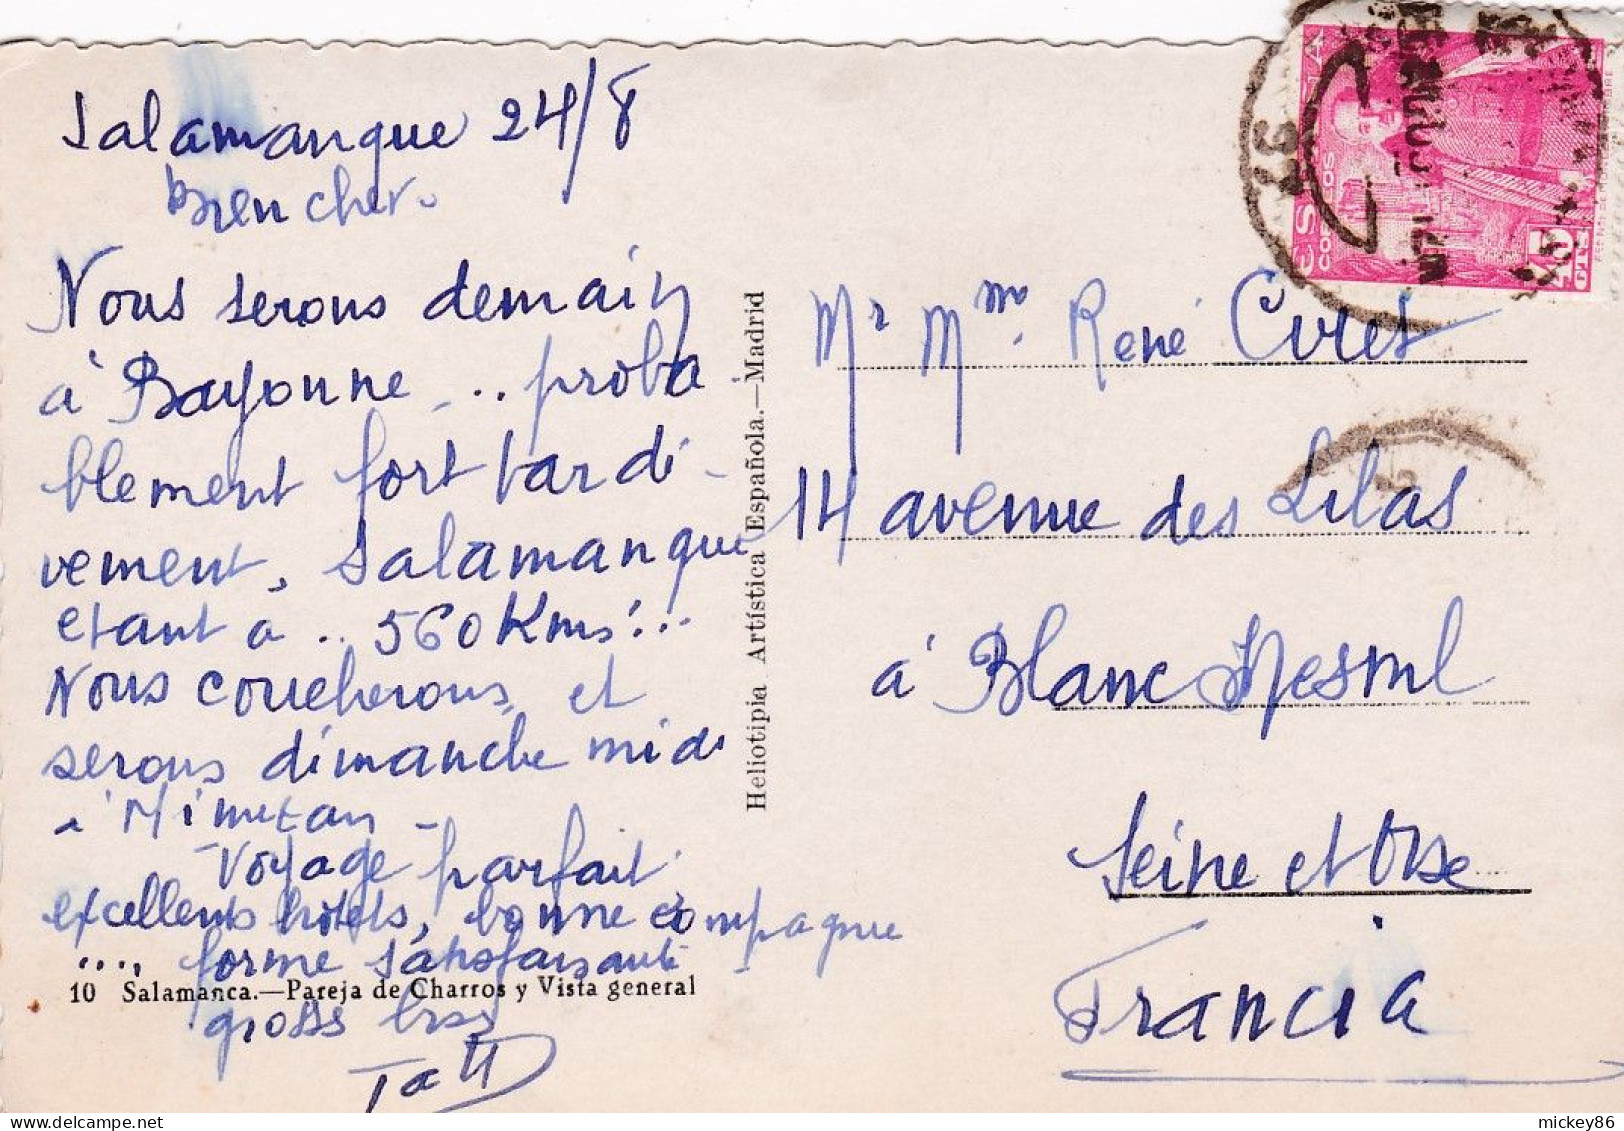 Salamanque 24/8
bien cher.
Nous serons demain
à Bayonne ... proba
blement fort tardi-
vement, Salamanque
etant a .. 560 Kms!...
Nous coucherons, et
serons dimanche midi
a Mimizan -
Voyage parfait
excellents hotels, bonne compagnie
...., forme satisfaisante
10 Salamanca.—Pareja de Charros y Vista general
gross
Heliotipia Artística Española.—Madrid
Mr Mme René
14 avenue des Lilas
à Blanc Mesnil
Seine et Oise
Francia
ESPAÑA
CORREOS
CTS
mickey86